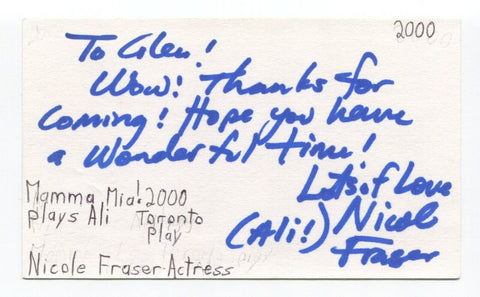 2000
To Glen!
Wow! Thanks for
Coming! Hope you have
a Wonderful time!
Lots of Love
(Ali!) Nicole
Fraser
Mamma Mia! 2000
plays Ali Toronto
play
Nicole Fraser-Actress